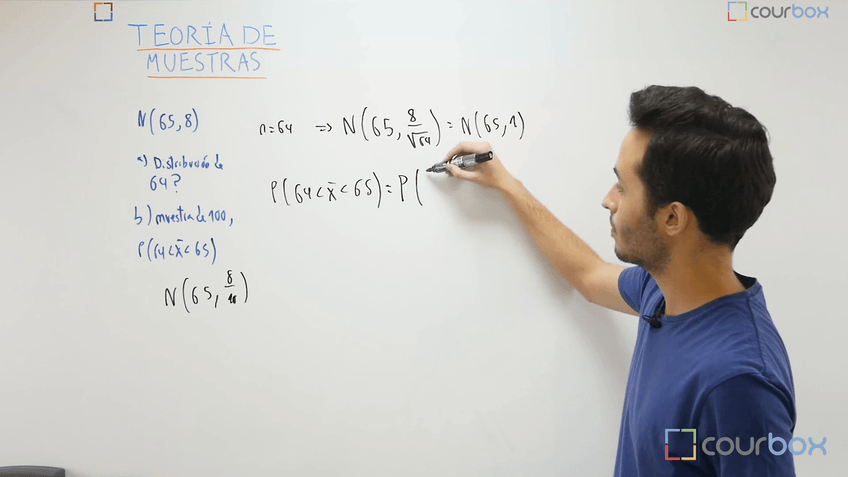 courbox
TEORÍA DE
MUESTRAS
N(65,8)
a) Distribución de
64?
b) muestra de 100,
P(64<x̄<65)
N(65, 8/10)
n=64 ⇒ N(65, 8/√64) = N(65,1)
P(64<x̄<65) = P(
courbox